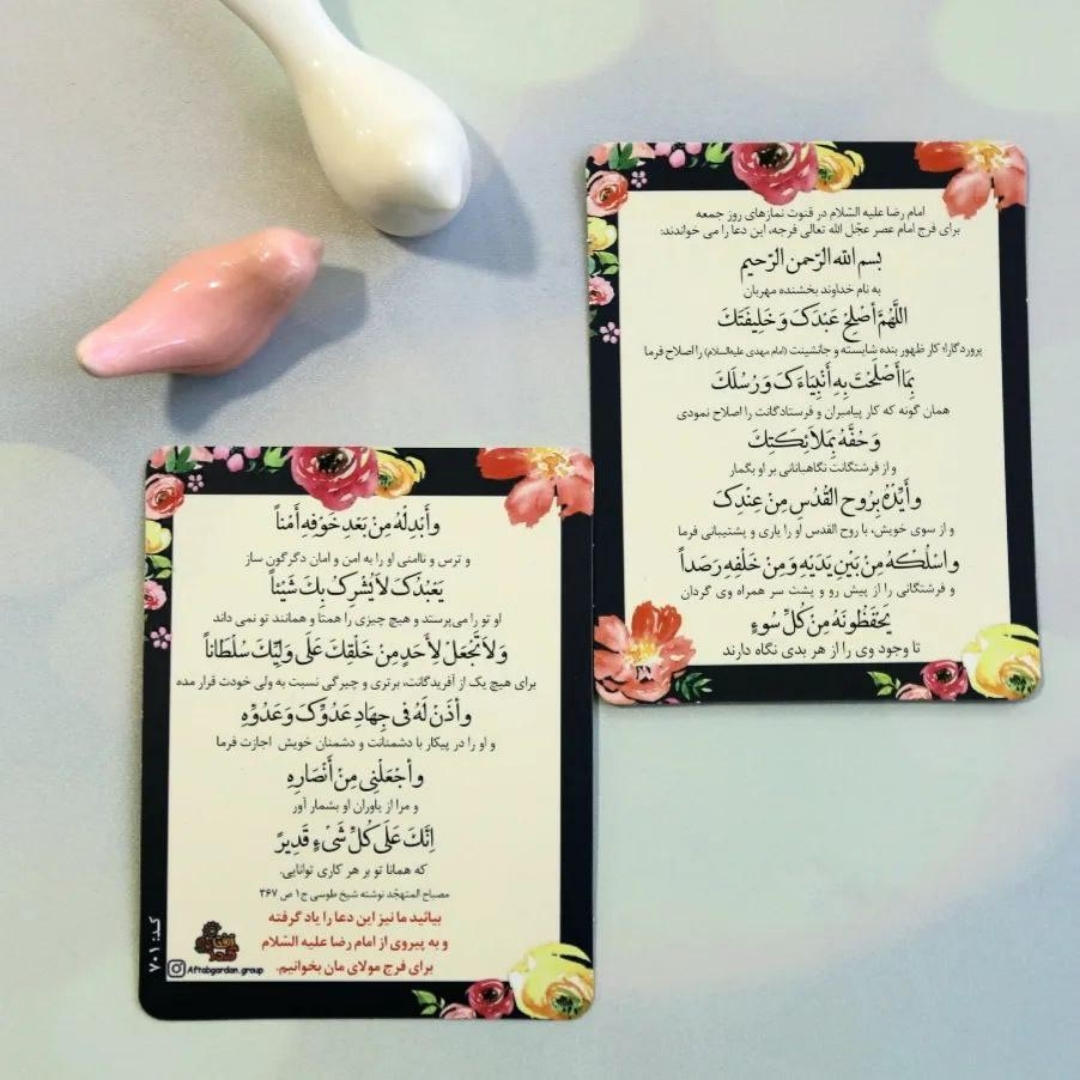 امام رضا علیه السّلام در قنوت نمازهای روز جمعه
برای فرج امام عصر عجّل الله تعالی فرجه، این دعا را می خواندند:
بسم الله الرّحمن الرّحیم
به نام خداوند بخشنده مهربان
اللَّهُمَّ أَصْلِحْ عَبْدَکَ وَ خَلِیفَتَكَ
پروردگارا؛ کار ظهور بنده شایسته و جانشینت (امام مهدی علیه‌السلام) را اصلاح فرما
بِمَا أَصْلَحْتَ بِهِ أَنْبِیَاءَکَ وَ رُسُلَكَ
همان گونه که کار پیامبران و فرستادگانت را اصلاح نمودی
وَ حُفَّهُ بِمَلاَئِکَتِكَ
و از فرشتگانت نگاهبانانی بر او بگمار
وأَیِّدْهُ بِرُوحِ القُدُسِ مِنْ عِنْدِکَ
و از سوی خویش، با روح القدس او را یاری و پشتیبانی فرما
واسْلُکْهُ مِنْ بَیْنِ یَدَیْهِ وَ مِنْ خَلْفِهِ رَصَداً
و فرشتگانی را از پیش رو و پشت سر همراه وی گردان
یَحْفَظُونَهُ مِنْ کُلِّ سُوءٍ
تا وجود وی را از هر بدی نگاه دارند
وأَبْدِلْهُ مِنْ بَعْدِ خَوْفِهِ أَمْناً
و ترس و ناامنی او را به امن و امان دگرگون ساز
یَعْبُدُکَ لاَ یُشْرِکُ بِكَ شَیْئاً
او تو را می‌پرستد و هیچ چیزی را همتا و همانند تو نمی داند
وَ لاَ تَجْعَلْ لِأَحَدٍ مِنْ خَلْقِكَ عَلَى وَلِیِّكَ سُلْطَاناً
برای هیچ یک از آفریدگانت، برتری و چیرگی نسبت به ولی خودت قرار مده
وأْذَنْ لَهُ فی جِهَادِ عَدُوِّکَ وَ عَدُوِّهِ
و او را در پیکار با دشمنانت و دشمنان خویش اجازت فرما
واجْعَلْنِی مِنْ أَنْصَارِهِ
و مرا از یاوران او بشمار آور
اِنَّكَ عَلَی کُلِّ شَیْءٍ قَدِیرٌ
که همانا تو بر هر کاری توانایی.
مصباح المتهجّد نوشته شیخ طوسی ج۱ ص ۳۶۷
بیائید ما نیز این دعا را یاد گرفته
و به پیروی از امام رضا علیه السّلام
برای فرج مولای مان بخوانیم.
Aftabgardan.group
کد: ۷۰۱